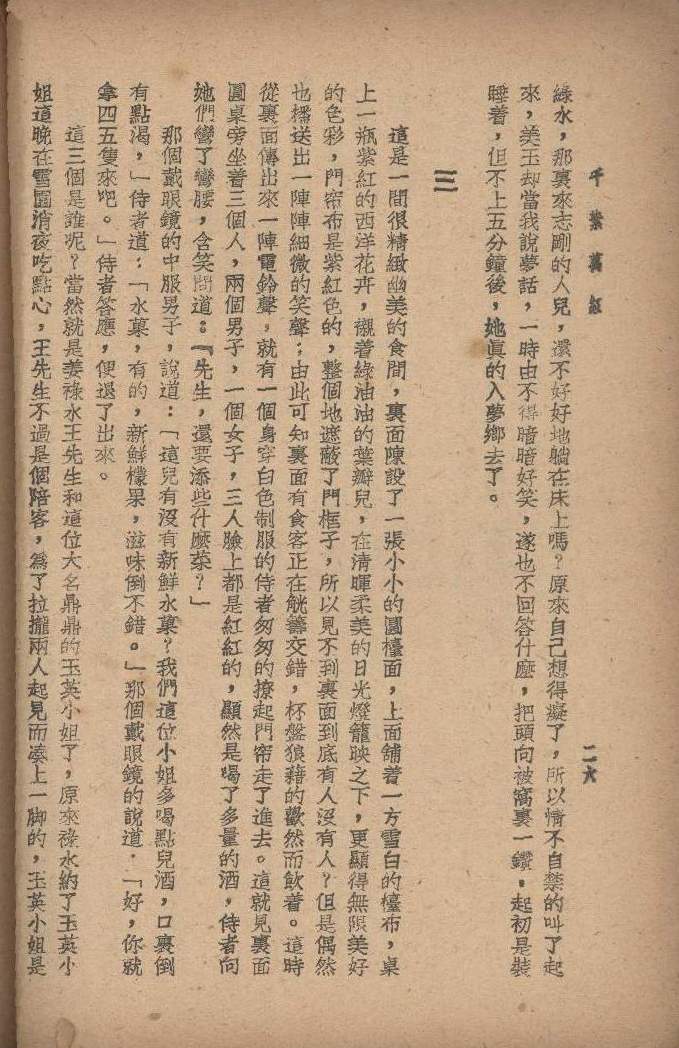 千紫萬紅
二六
綠水，那裏來志剛的人兒，還不好好地躺在床上嗎？原來自己想得癡了，所以情不自禁的叫了起
來，美玉却當我說夢話，一時由不得暗暗好笑，遂也不回答什麼，把頭向被窩裏一鑽。起初是裝
睡着，但不上五分鐘後，她眞的入夢鄉去了。
三
這是一間很精緻幽美的食間，裏面陳設了一張小小的圓檯面，上面舖着一方雪白的檯布，桌
上一瓶紫紅的西洋花卉，襯着綠油油的葉瓣兒，在清暉柔美的日光燈籠映之下，更顯得無限美好
的色彩，門帘布是紫紅色的，整個地遮蔽了門框子，所以見不到裏面到底有人沒有人？但是偶然
也播送出一陣陣細微的笑聲；由此可知裏面有食客正在觥籌交錯，杯盤狼藉的歡然而飲着。這時
從裏面傳出來一陣電鈴聲，就有一個身穿白色制服的侍者匆匆的撩起門帘走了進去。這就見裏面
圓桌旁坐着三個人，兩個男子，一個女子，三人臉上都是紅紅的，顯然是喝了多量的酒，侍者向
她們彎了彎腰，含笑問道：『先生，還要添些什麼菜？」
那個戴眼鏡的中服男子，說道：「這兒有沒有新鮮水菓？我們這位小姐多喝點兒酒，口裏倒
有點渴，」侍者道：「水菓，有的，新鮮檬果，滋味倒不錯。」那個戴眼鏡的說道．「好，你就
拿四五隻來吧。」侍者答應，便退了出來。
這三個是誰呢？當然就是姜祿水王先生和這位大名鼎鼎的玉英小姐了，原來祿水約了玉英小
姐這晚在雪園消夜吃點心，王先生不過是個陪客，爲了拉攏兩人起見而湊上一脚的，玉英小姐是